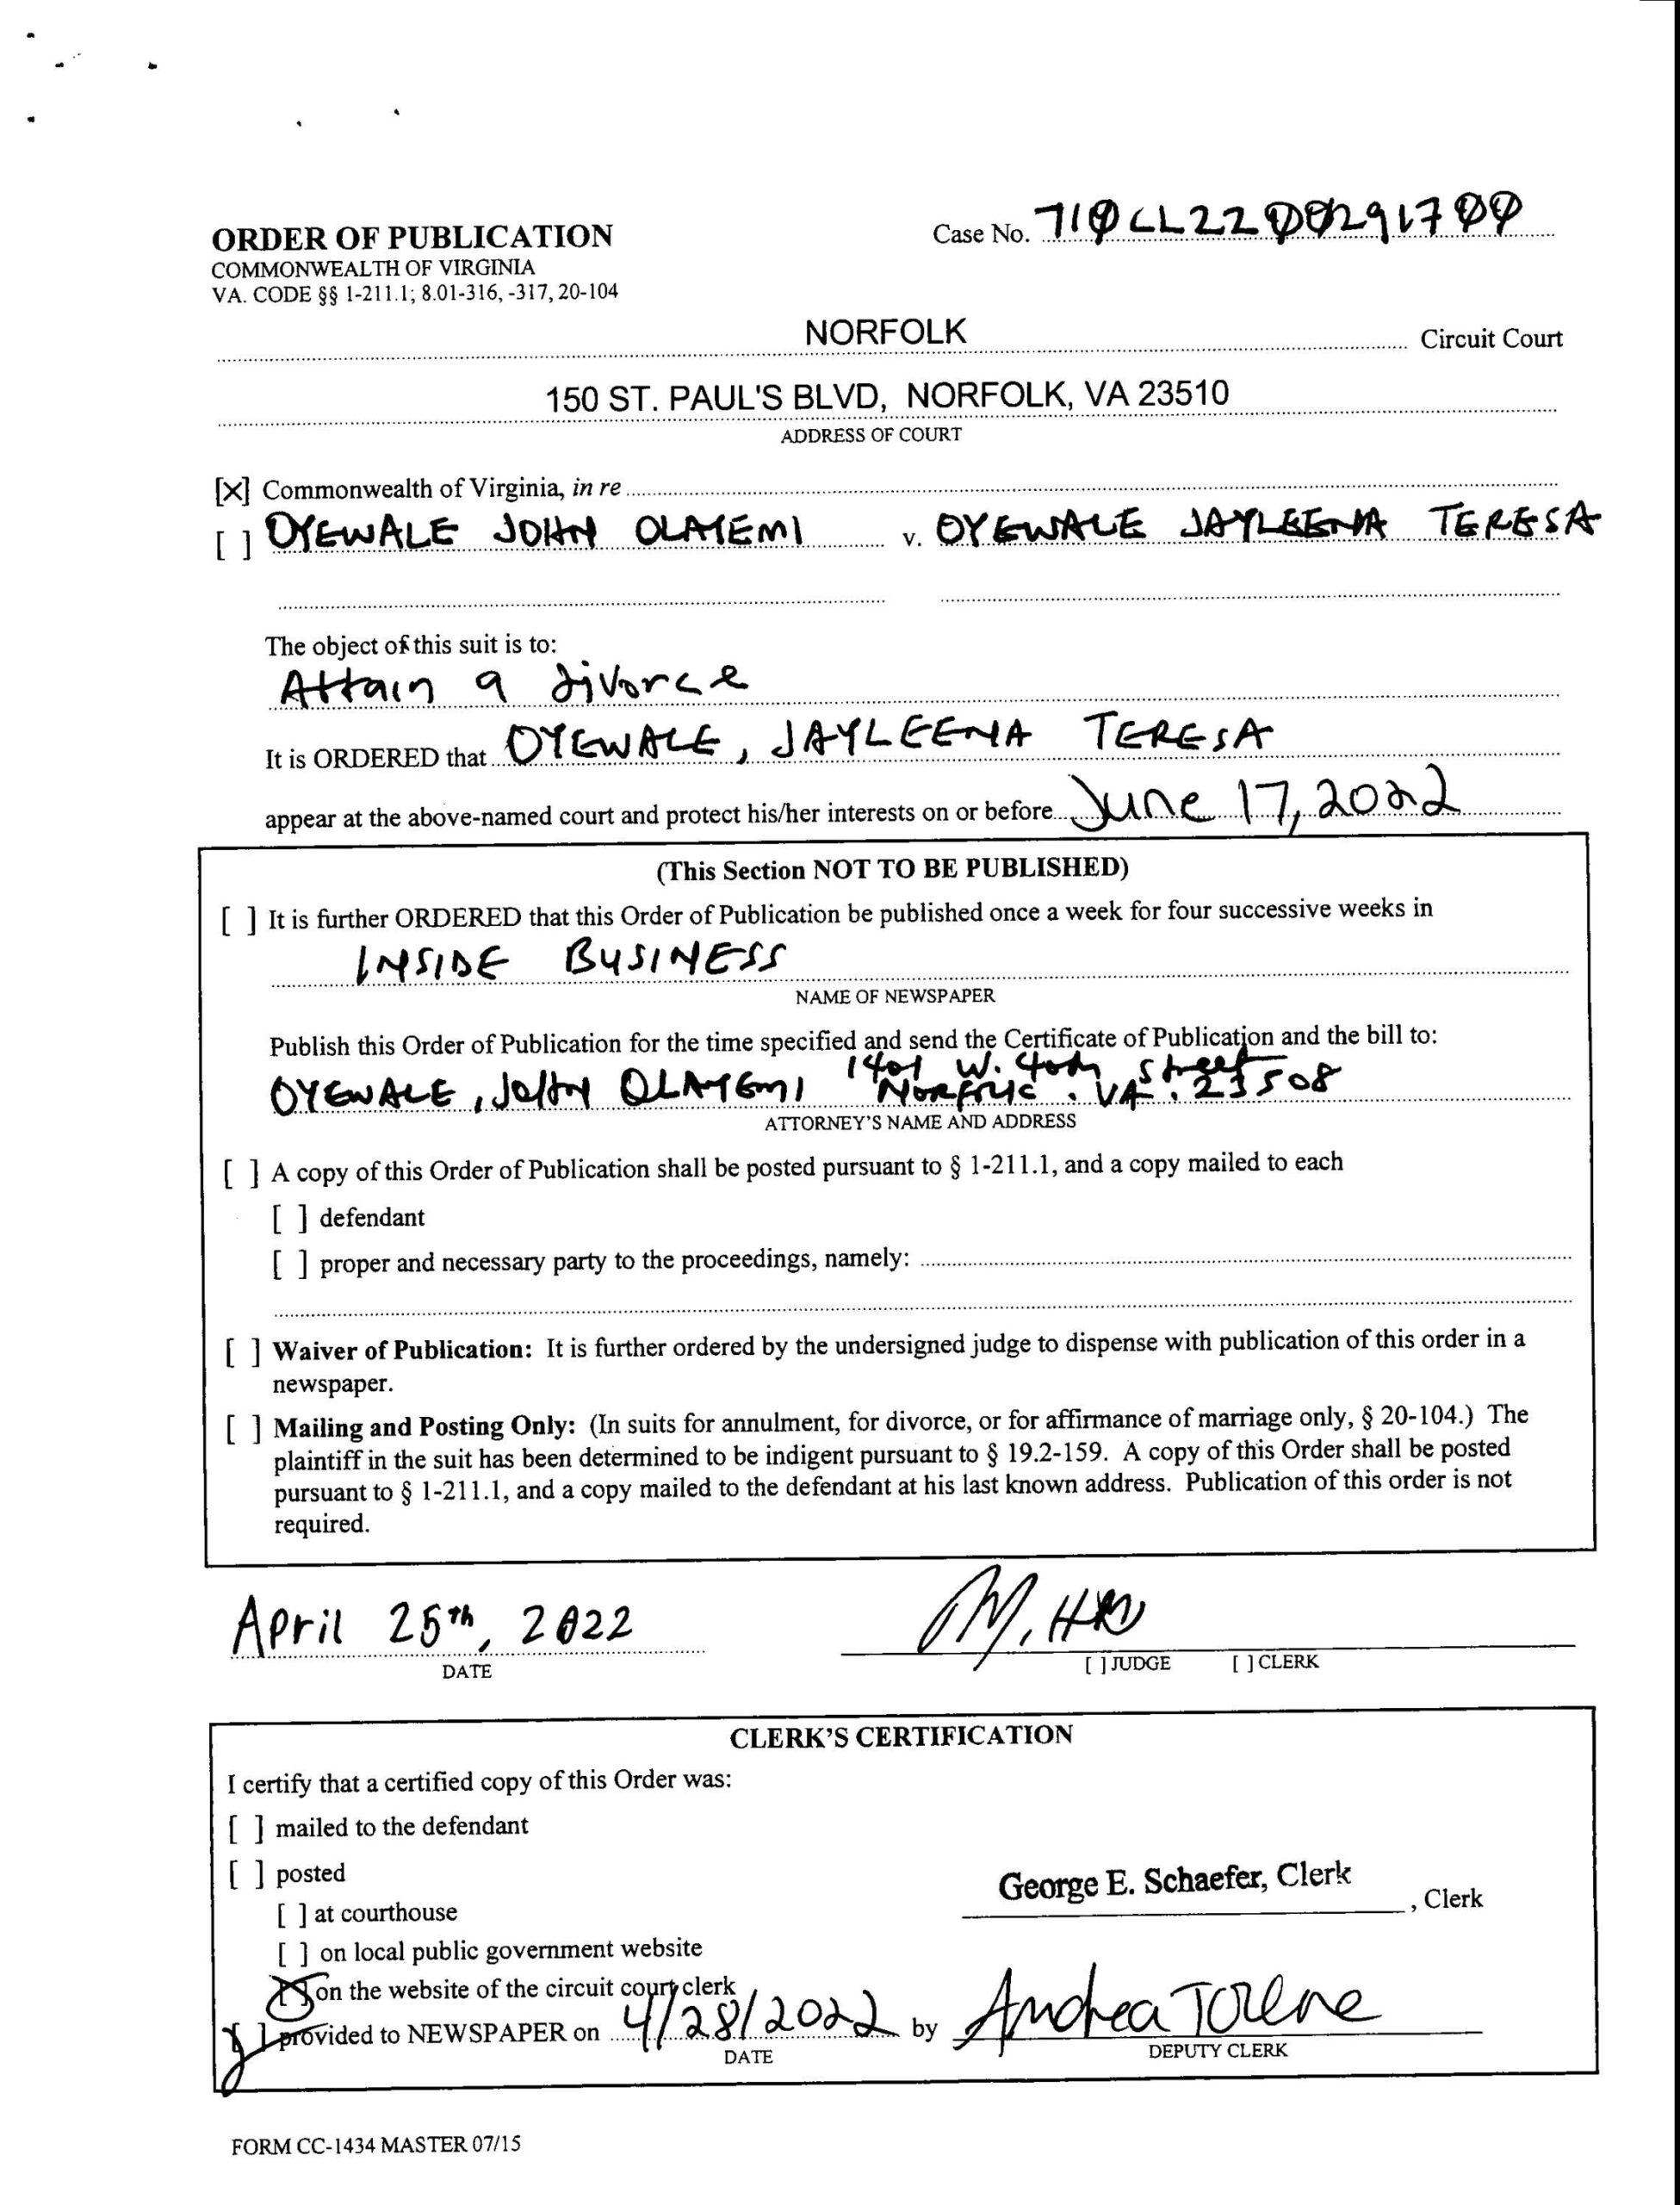 ORDER OF PUBLICATION
Case No. 710CL22000291700
COMMONWEALTH OF VIRGINIA
VA. CODE §§ 1-211.1; 8.01-316, -317, 20-104
NORFOLK Circuit Court
150 ST. PAUL'S BLVD, NORFOLK, VA 23510
ADDRESS OF COURT
[X] Commonwealth of Virginia, in re
[ ] OYEWALE JOHN OLAYEMI v. OYEWALE JAYLEENA TERESA
The object of this suit is to:
Attain a divorce
It is ORDERED that OYEWALE, JAYLEENA TERESA
appear at the above-named court and protect his/her interests on or before June 17, 2022
(This Section NOT TO BE PUBLISHED)
[ ] It is further ORDERED that this Order of Publication be published once a week for four successive weeks in
INSIDE BUSINESS
NAME OF NEWSPAPER
Publish this Order of Publication for the time specified and send the Certificate of Publication and the bill to:
1401 W. 40th Street
OYEWALE, John OLAYEMI Norfolk. VA. 23508
ATTORNEY'S NAME AND ADDRESS
[ ] A copy of this Order of Publication shall be posted pursuant to § 1-211.1, and a copy mailed to each
[ ] defendant
[ ] proper and necessary party to the proceedings, namely:
[ ] Waiver of Publication: It is further ordered by the undersigned judge to dispense with publication of this order in a
newspaper.
[ ] Mailing and Posting Only: (In suits for annulment, for divorce, or for affirmance of marriage only, § 20-104.) The
plaintiff in the suit has been determined to be indigent pursuant to § 19.2-159. A copy of this Order shall be posted
pursuant to § 1-211.1, and a copy mailed to the defendant at his last known address. Publication of this order is not
required.
April 25th, 2022
DATE
[ ] JUDGE [ ] CLERK
CLERK'S CERTIFICATION
I certify that a certified copy of this Order was:
[ ] mailed to the defendant
[ ] posted
George E. Schaefer, Clerk, Clerk
[ ] at courthouse
[ ] on local public government website
[X] on the website of the circuit court clerk
[ ] provided to NEWSPAPER on 4/28/2022 by Andrea Torene
DATE
DEPUTY CLERK
FORM CC-1434 MASTER 07/15